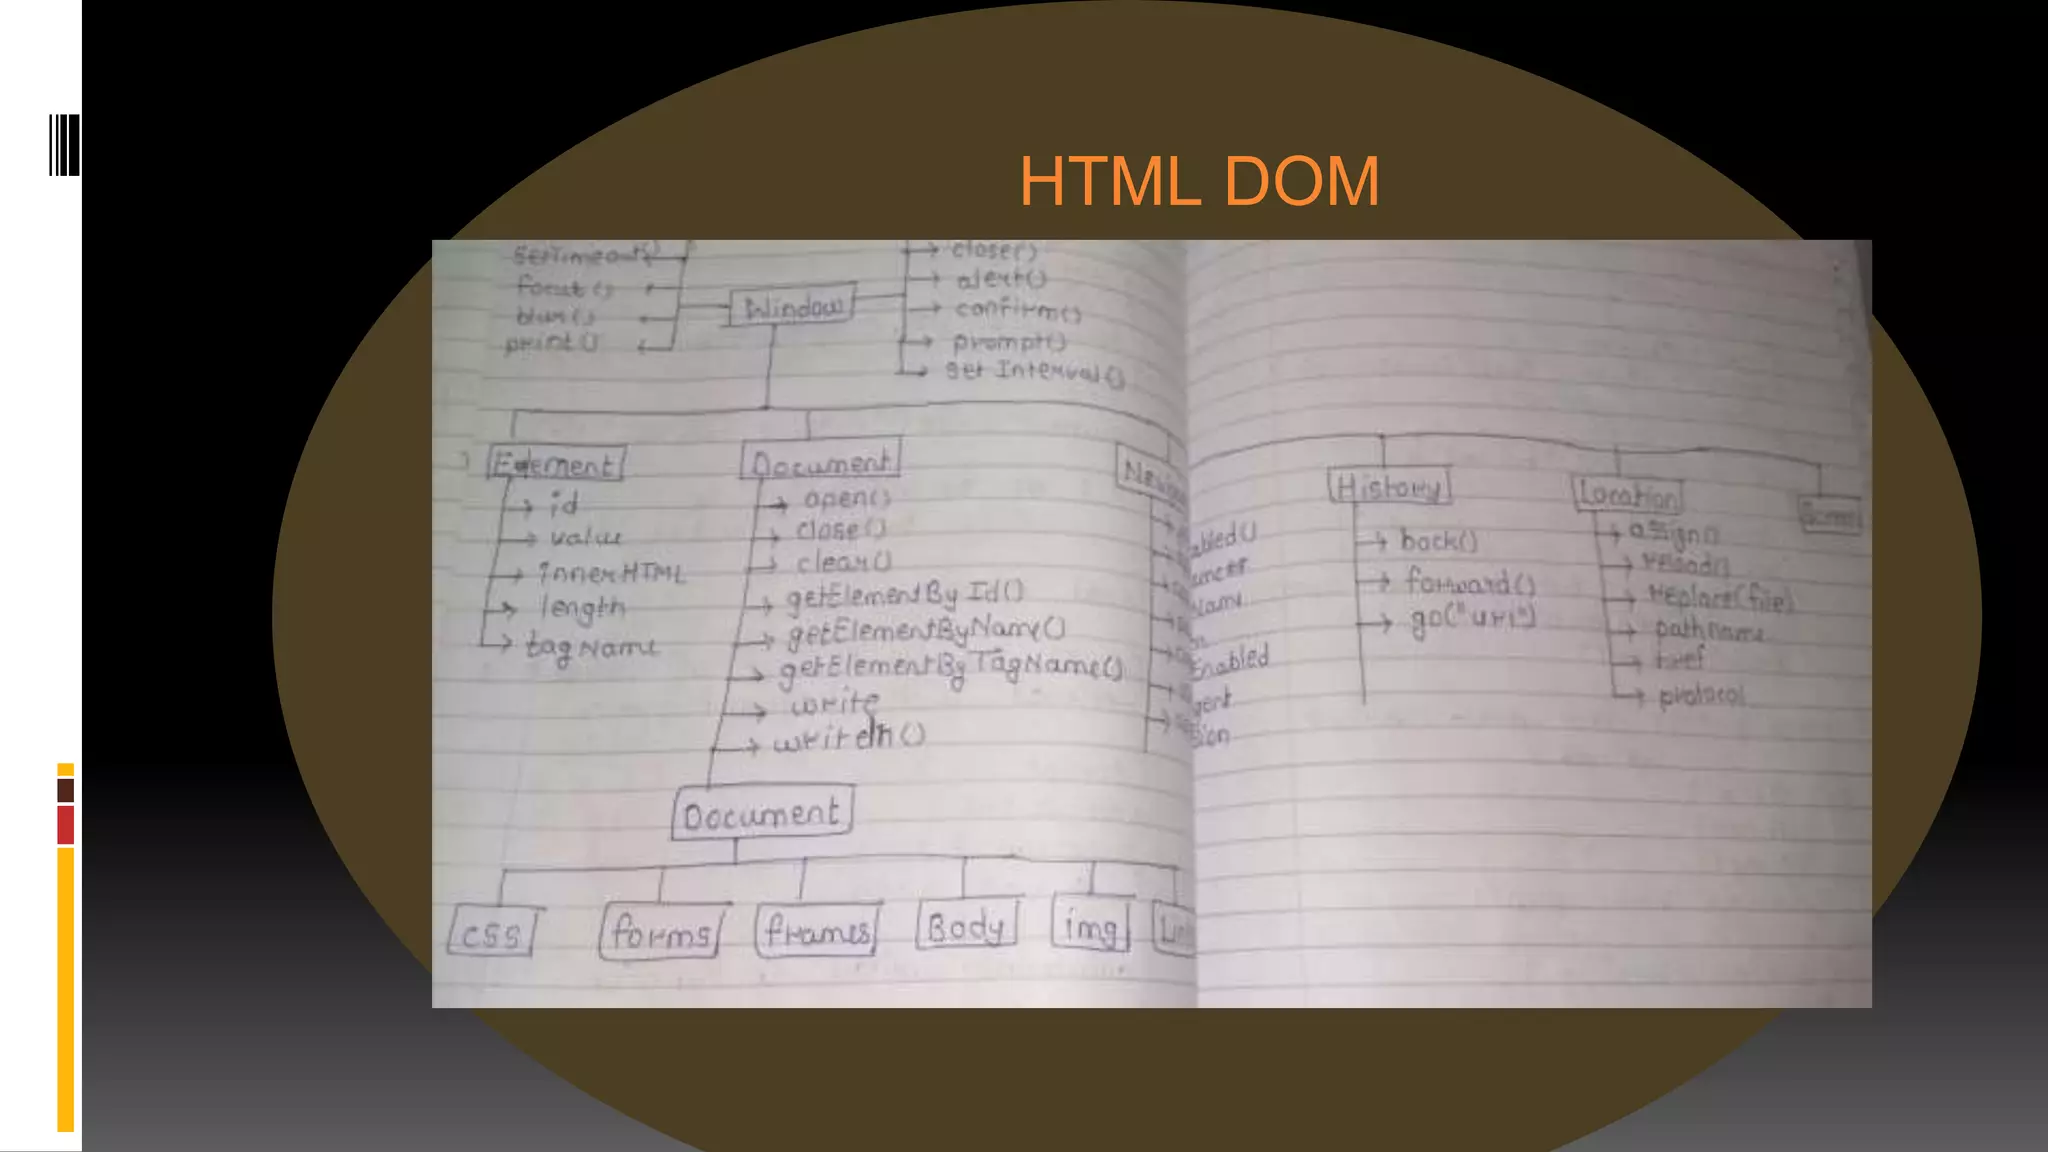 HTML DOM
setTimeout()
focus()
blur()
print()
Window
close()
alert()
confirm()
prompt()
get Interval()
Element
id
value
innerHTML
length
tagName
Document
open()
close()
clear()
getElementById()
getElementByName()
getElementByTagName()
write
writeln()
History
back()
forward()
go("url")
Location
assign()
reload()
replace(file)
pathname
href
protocol
Document
css
forms
frames
Body
img